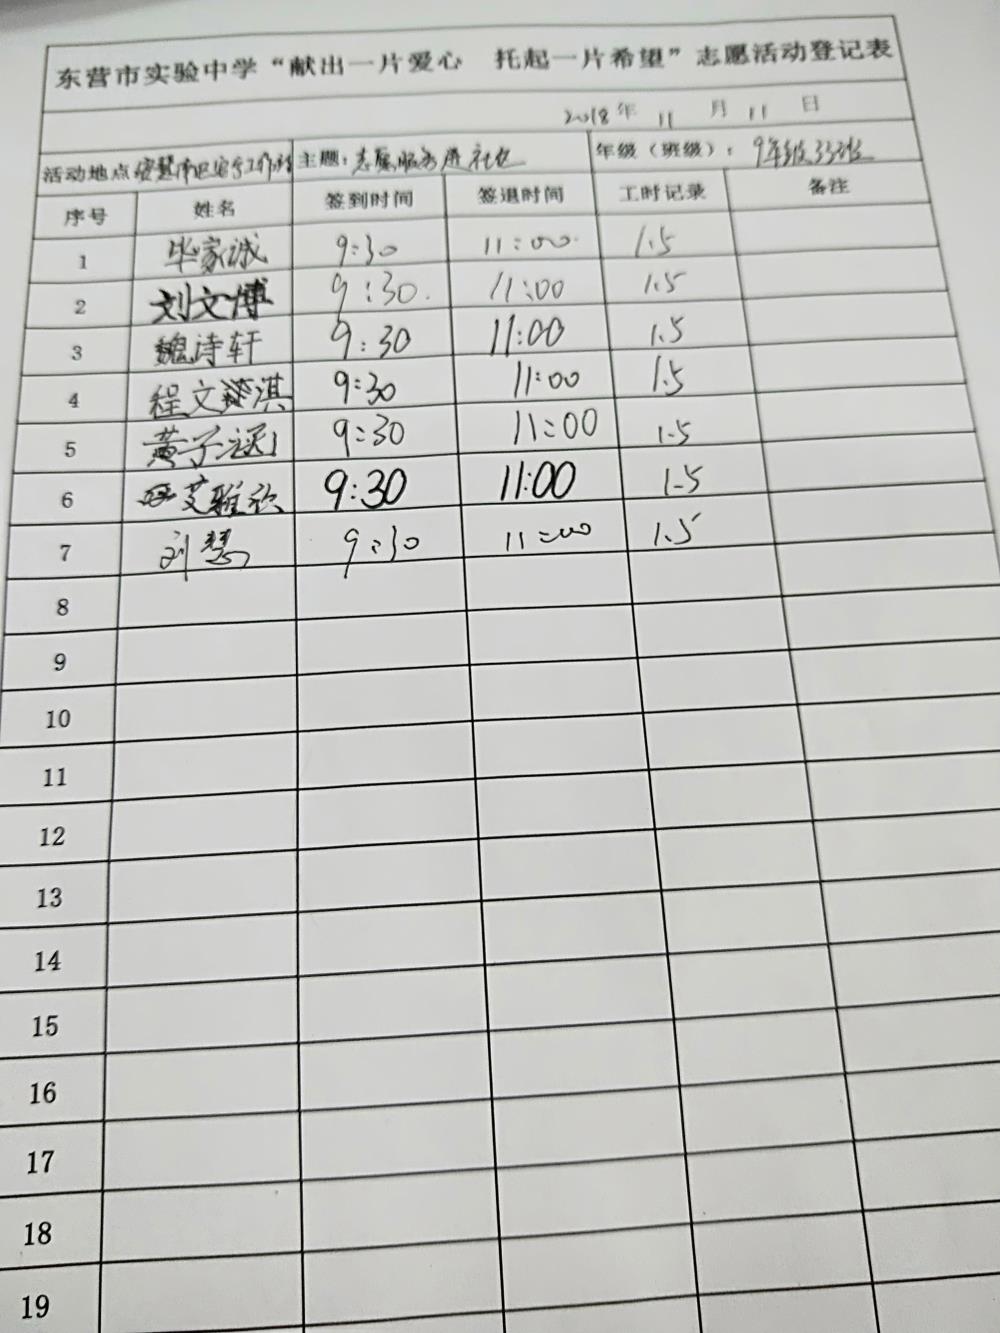 东营市实验中学“献出一片爱心 托起一片希望”志愿活动登记表
2018年 11 月 11 日
活动地点 主题:志愿服务进社区 年级(班级):9年级33班
序号 姓名 签到时间 签退时间 工时记录 备注
1 毕家诚 9:30 11:00 1.5
2 刘文博 9:30 11:00 1.5
3 魏诗轩 9:30 11:00 1.5
4 程文淇 9:30 11:00 1.5
5 黄子 9:30 11:00 1.5
6 艾雅欣 9:30 11:00 1.5
7 刘慧 9:30 11:00 1.5
8
9
10
11
12
13
14
15
16
17
18
19